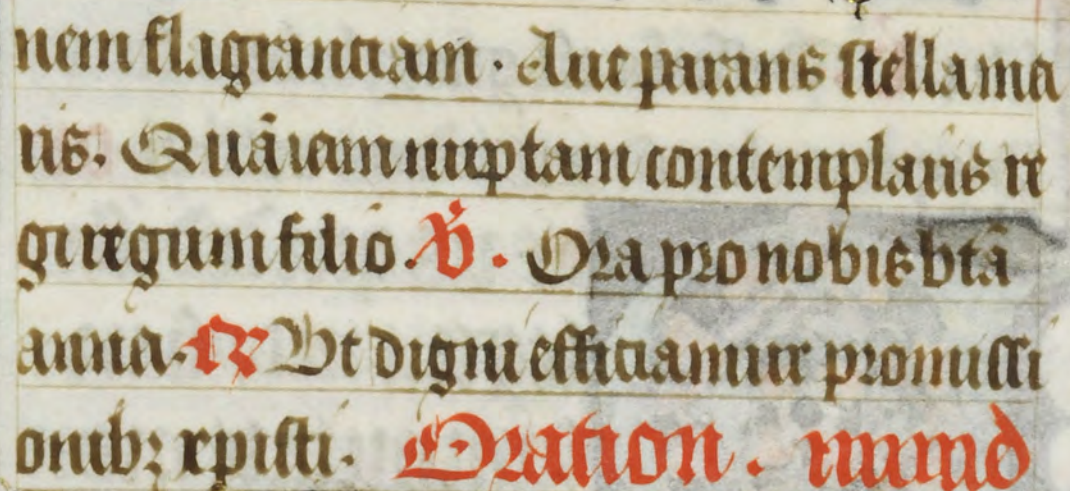 nem flagranciam. Aue parans stella ma
ris. Quā iam nuptam contemplaris re
gi regum filio. V̄. Ora pro nobis btā
anna. R Vt digni efficiamur promissi
onibꝫ xpisti. Oration.